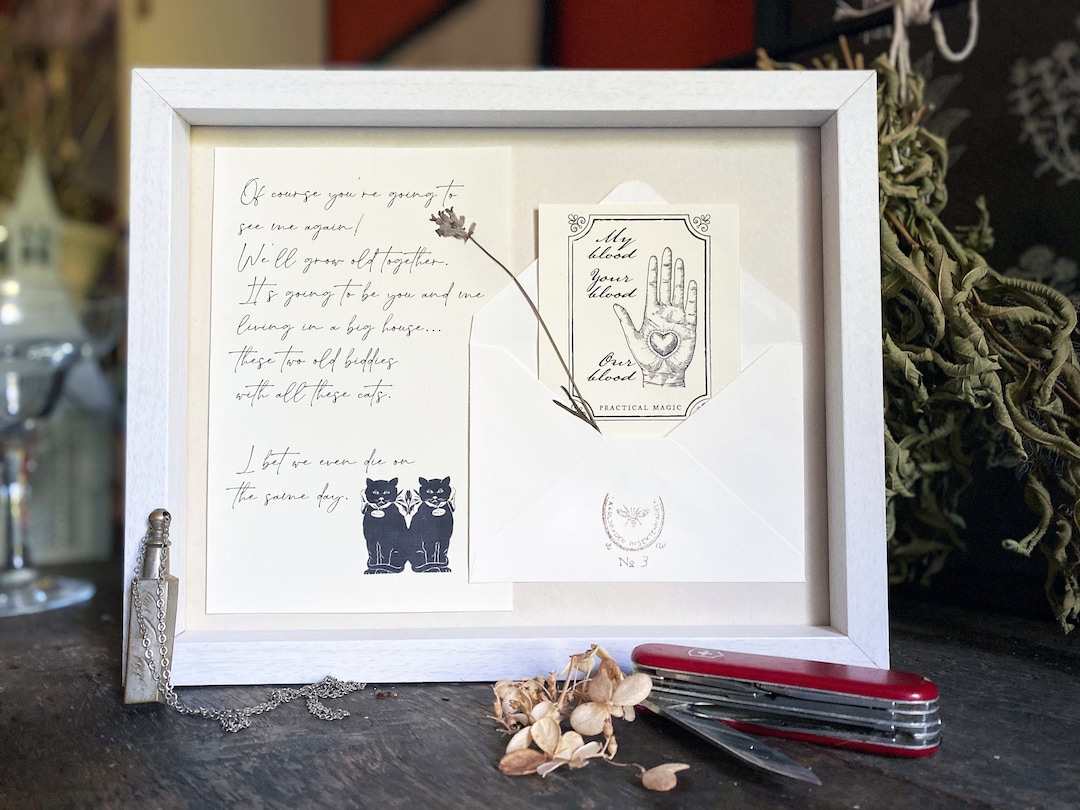 Of course you're going to
see me again!
We'll grow old together.
It's going to be you and me
living in a big house...
these two old biddies
with all these cats.
I bet we even die on
the same day.
My
blood
Your
blood
Our
blood
PRACTICAL MAGIC
No 3